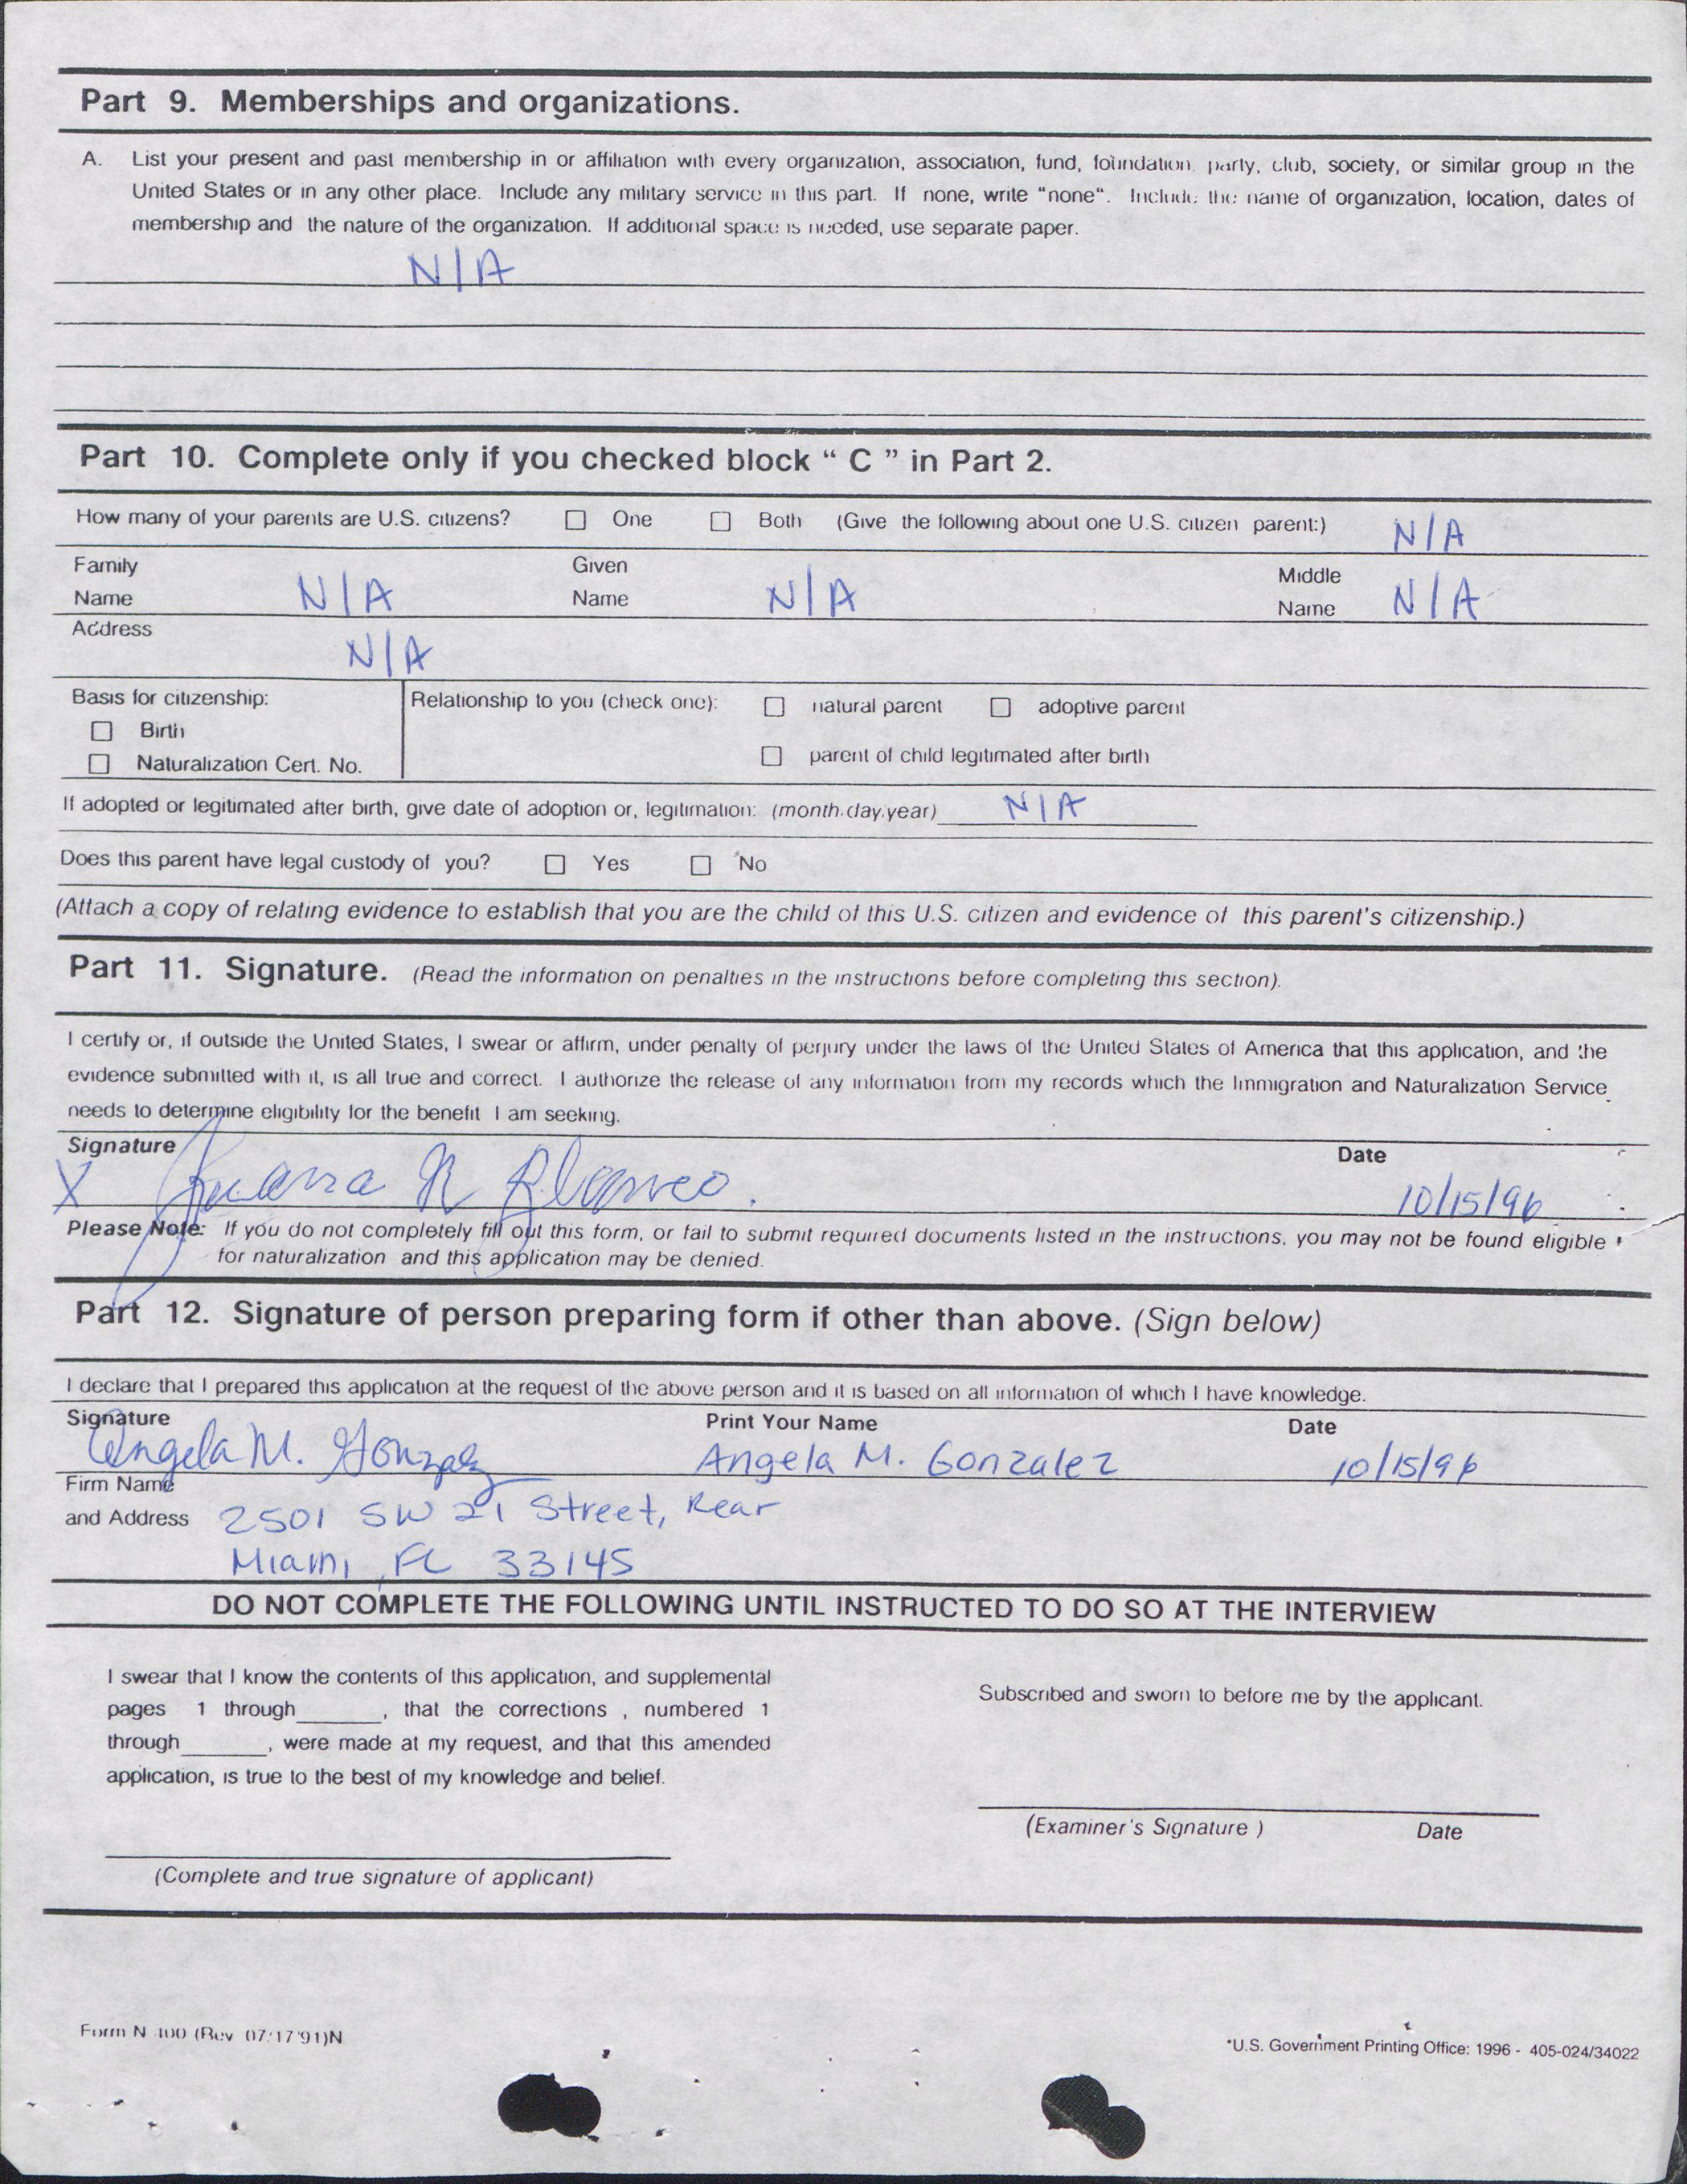 Part 9. Memberships and organizations.
A. List your present and past membership in or affiliation with every organization, association, fund, foundation, party, club, society, or similar group in the
United States or in any other place. Include any military service in this part. If none, write "none". Include the name of organization, location, dates of
membership and the nature of the organization. If additional space is needed, use separate paper.
N/A
Part 10. Complete only if you checked block " C " in Part 2.
How many of your parents are U.S. citizens? ☐ One ☐ Both (Give the following about one U.S. citizen parent:) N/A
Family Name N/A Given Name N/A Middle Name N/A
Address
N/A
Basis for citizenship: Relationship to you (check one): ☐ natural parent ☐ adoptive parent
☐ Birth
☐ Naturalization Cert. No. ☐ parent of child legitimated after birth
If adopted or legitimated after birth, give date of adoption or, legitimation: (month,day,year) N/A
Does this parent have legal custody of you? ☐ Yes ☐ No
(Attach a copy of relating evidence to establish that you are the child of this U.S. citizen and evidence of this parent's citizenship.)
Part 11. Signature. (Read the information on penalties in the instructions before completing this section).
I certify or, if outside the United States, I swear or affirm, under penalty of perjury under the laws of the United States of America that this application, and the
evidence submitted with it, is all true and correct. I authorize the release of any information from my records which the Immigration and Naturalization Service
needs to determine eligibility for the benefit I am seeking.
Signature Date
X Juana R 10/15/96
Please Note: If you do not completely fill out this form, or fail to submit required documents listed in the instructions, you may not be found eligible
for naturalization and this application may be denied.
Part 12. Signature of person preparing form if other than above. (Sign below)
I declare that I prepared this application at the request of the above person and it is based on all information of which I have knowledge.
Signature Print Your Name Date
Angela M. Gonzalez Angela M. Gonzalez 10/15/96
Firm Name
and Address 2501 SW 21 Street, Rear
Miami, FL 33145
DO NOT COMPLETE THE FOLLOWING UNTIL INSTRUCTED TO DO SO AT THE INTERVIEW
I swear that I know the contents of this application, and supplemental
pages 1 through______, that the corrections , numbered 1
through______, were made at my request, and that this amended
application, is true to the best of my knowledge and belief.
Subscribed and sworn to before me by the applicant.
(Examiner's Signature ) Date
(Complete and true signature of applicant)
Form N-400 (Rev 07/17/91)N
*U.S. Government Printing Office: 1996 - 405-024/34022